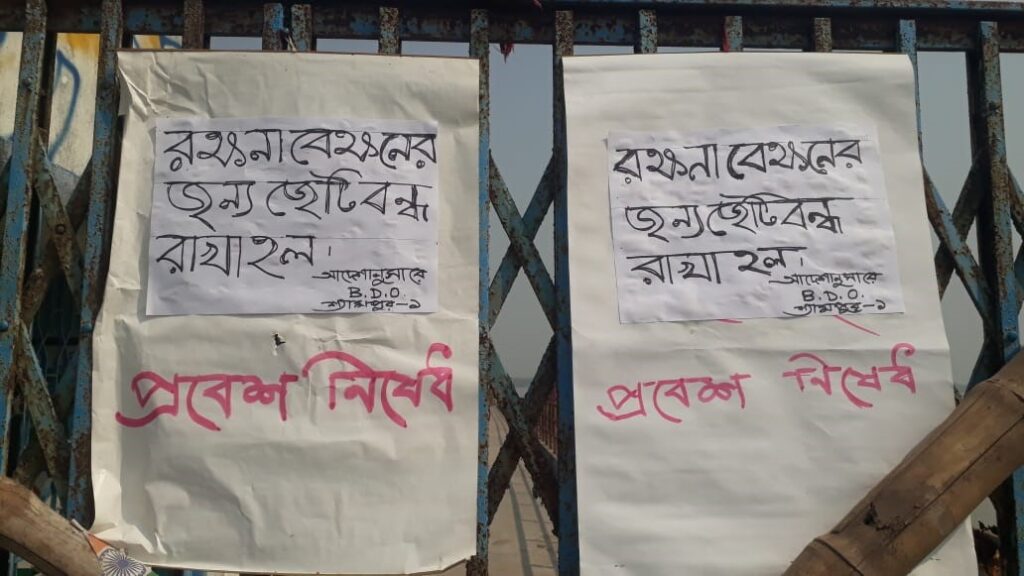 রক্ষনাবেক্ষনের
জন্য জেটি বন্ধ
রাখা হল।
আদেশানুসারে
B.D.O.
শ্যামপুর-১
প্রবেশ নিষেধ
রক্ষনাবেক্ষনের
জন্য জেটি বন্ধ
রাখা হল।
আদেশানুসারে
B.D.O
শ্যামপুর-১
প্রবেশ নিষেধ